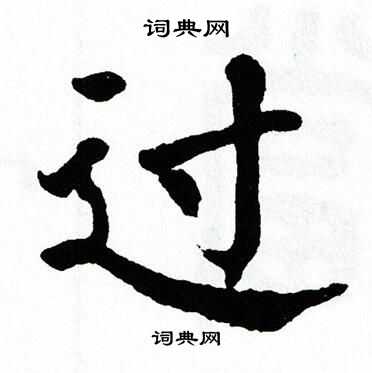 词典网
过
词典网